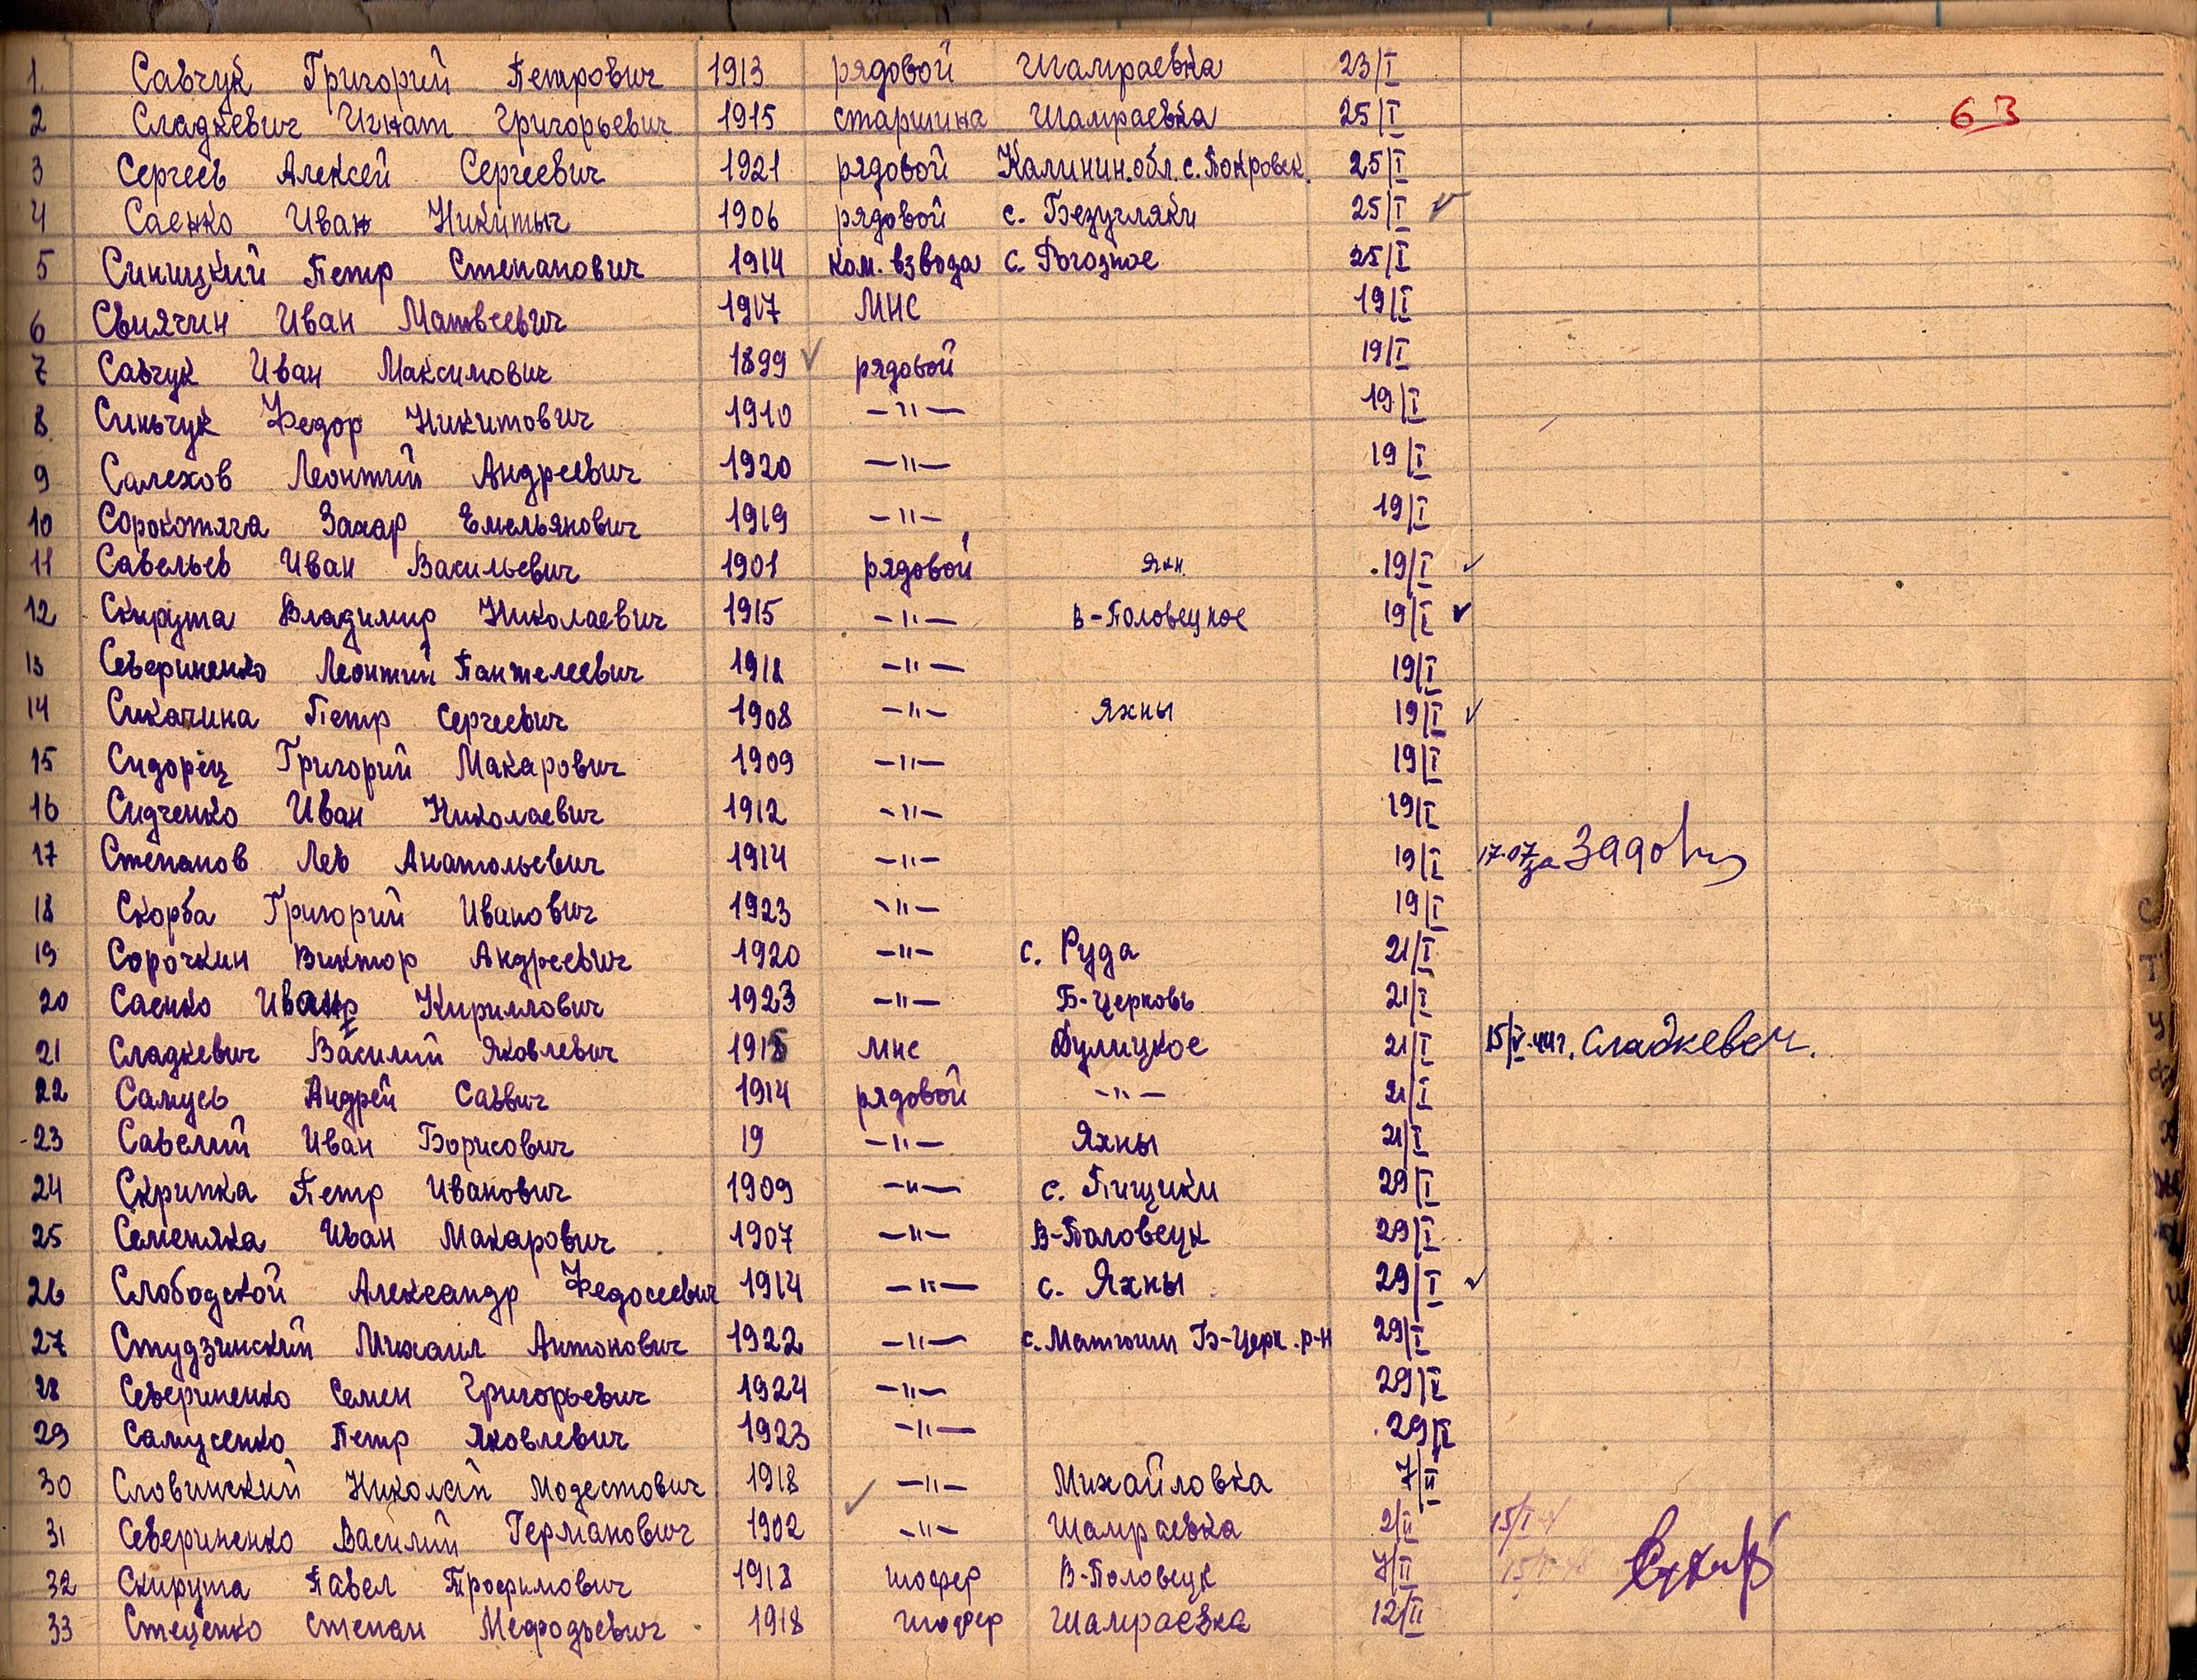 63
1. Савчук Григорий Петрович 1913 рядовой Шамраевка 23/I
2 Сладкевич Игнат Григорьевич 1915 старшина Шамраевка 25/I
3 Сергеев Алексей Сергеевич 1921 рядовой Калинин.обл. с. Покровск. 25/I
4 Саенко Иван Никитыч 1906 рядовой с. Безугляки 25/I
5 Синицкий Петр Степанович 1914 ком. взвода с. Рогозное 25/I
6 Свиячин Иван Матвеевич 1917 МНС 19/I
7 Савчук Иван Максимович 1899 рядовой 19/I
8 Синьчук Федор Никитович 1910 –"– 19/I
9 Салехов Леонтий Андреевич 1920 –"– 19/I
10 Сорокотяга Захар Емельянович 1919 –"– 19/I
11 Савельев Иван Васильевич 1901 рядовой Яхн. 19/I
12 Скирута Владимир Николаевич 1915 –"– В-Половецкое 19/I
13 Севериненко Леонтий Пантелеевич 1918 –"– 19/I
14 Сикачина Петр Сергеевич 1908 –"– Яхны 19/I
15 Сидорец Григорий Макарович 1909 –"– 19/I
16 Сидченко Иван Николаевич 1912 –"– 19/I
17 Степанов Лев Анатольевич 1914 –"– 19/I 17.07 за
18 Скорба Григорий Иванович 1923 –"– 19/I
19 Сорочкин Виктор Андреевич 1920 –"– с. Руда 21/I
20 Саенко Иван Кириллович 1923 –"– Б-Церковь 21/I
21 Сладкевич Василий Яковлевич 1915 мнс Дулицкое 21/I 15/V-44г. Сладкевич.
22 Самусь Андрей Саввич 1914 рядовой –"– 21/I
23 Савелий Иван Борисович 19 –"– Яхны 21/I
24 Скрипка Петр Иванович 1909 –"– с. Пищики 29/I
25 Семеняка Иван Макарович 1907 –"– В-Половецк 29/I
26 Слободской Александр Федосеевич 1914 –"– с. Яхны 29/I
27 Студзинский Михаил Антонович 1922 –"– с. Матюши Б-Церк. р-н 29/I
28 Севериненко Семен Григорьевич 1924 –"– 29/I
29 Самусенко Петр Яковлевич 1923 –"– 29/I
30 Словинский Николай Модестович 1918 –"– Михайловка 7/II
31 Севериненко Василий Германович 1902 –"– Шамраевка 2/II
32 Скирута Павел Трофимович 1918 шофер В-Половецк 7/II
33 Стеценко Степан Мефодьевич 1918 шофер Шамраевка 12/II